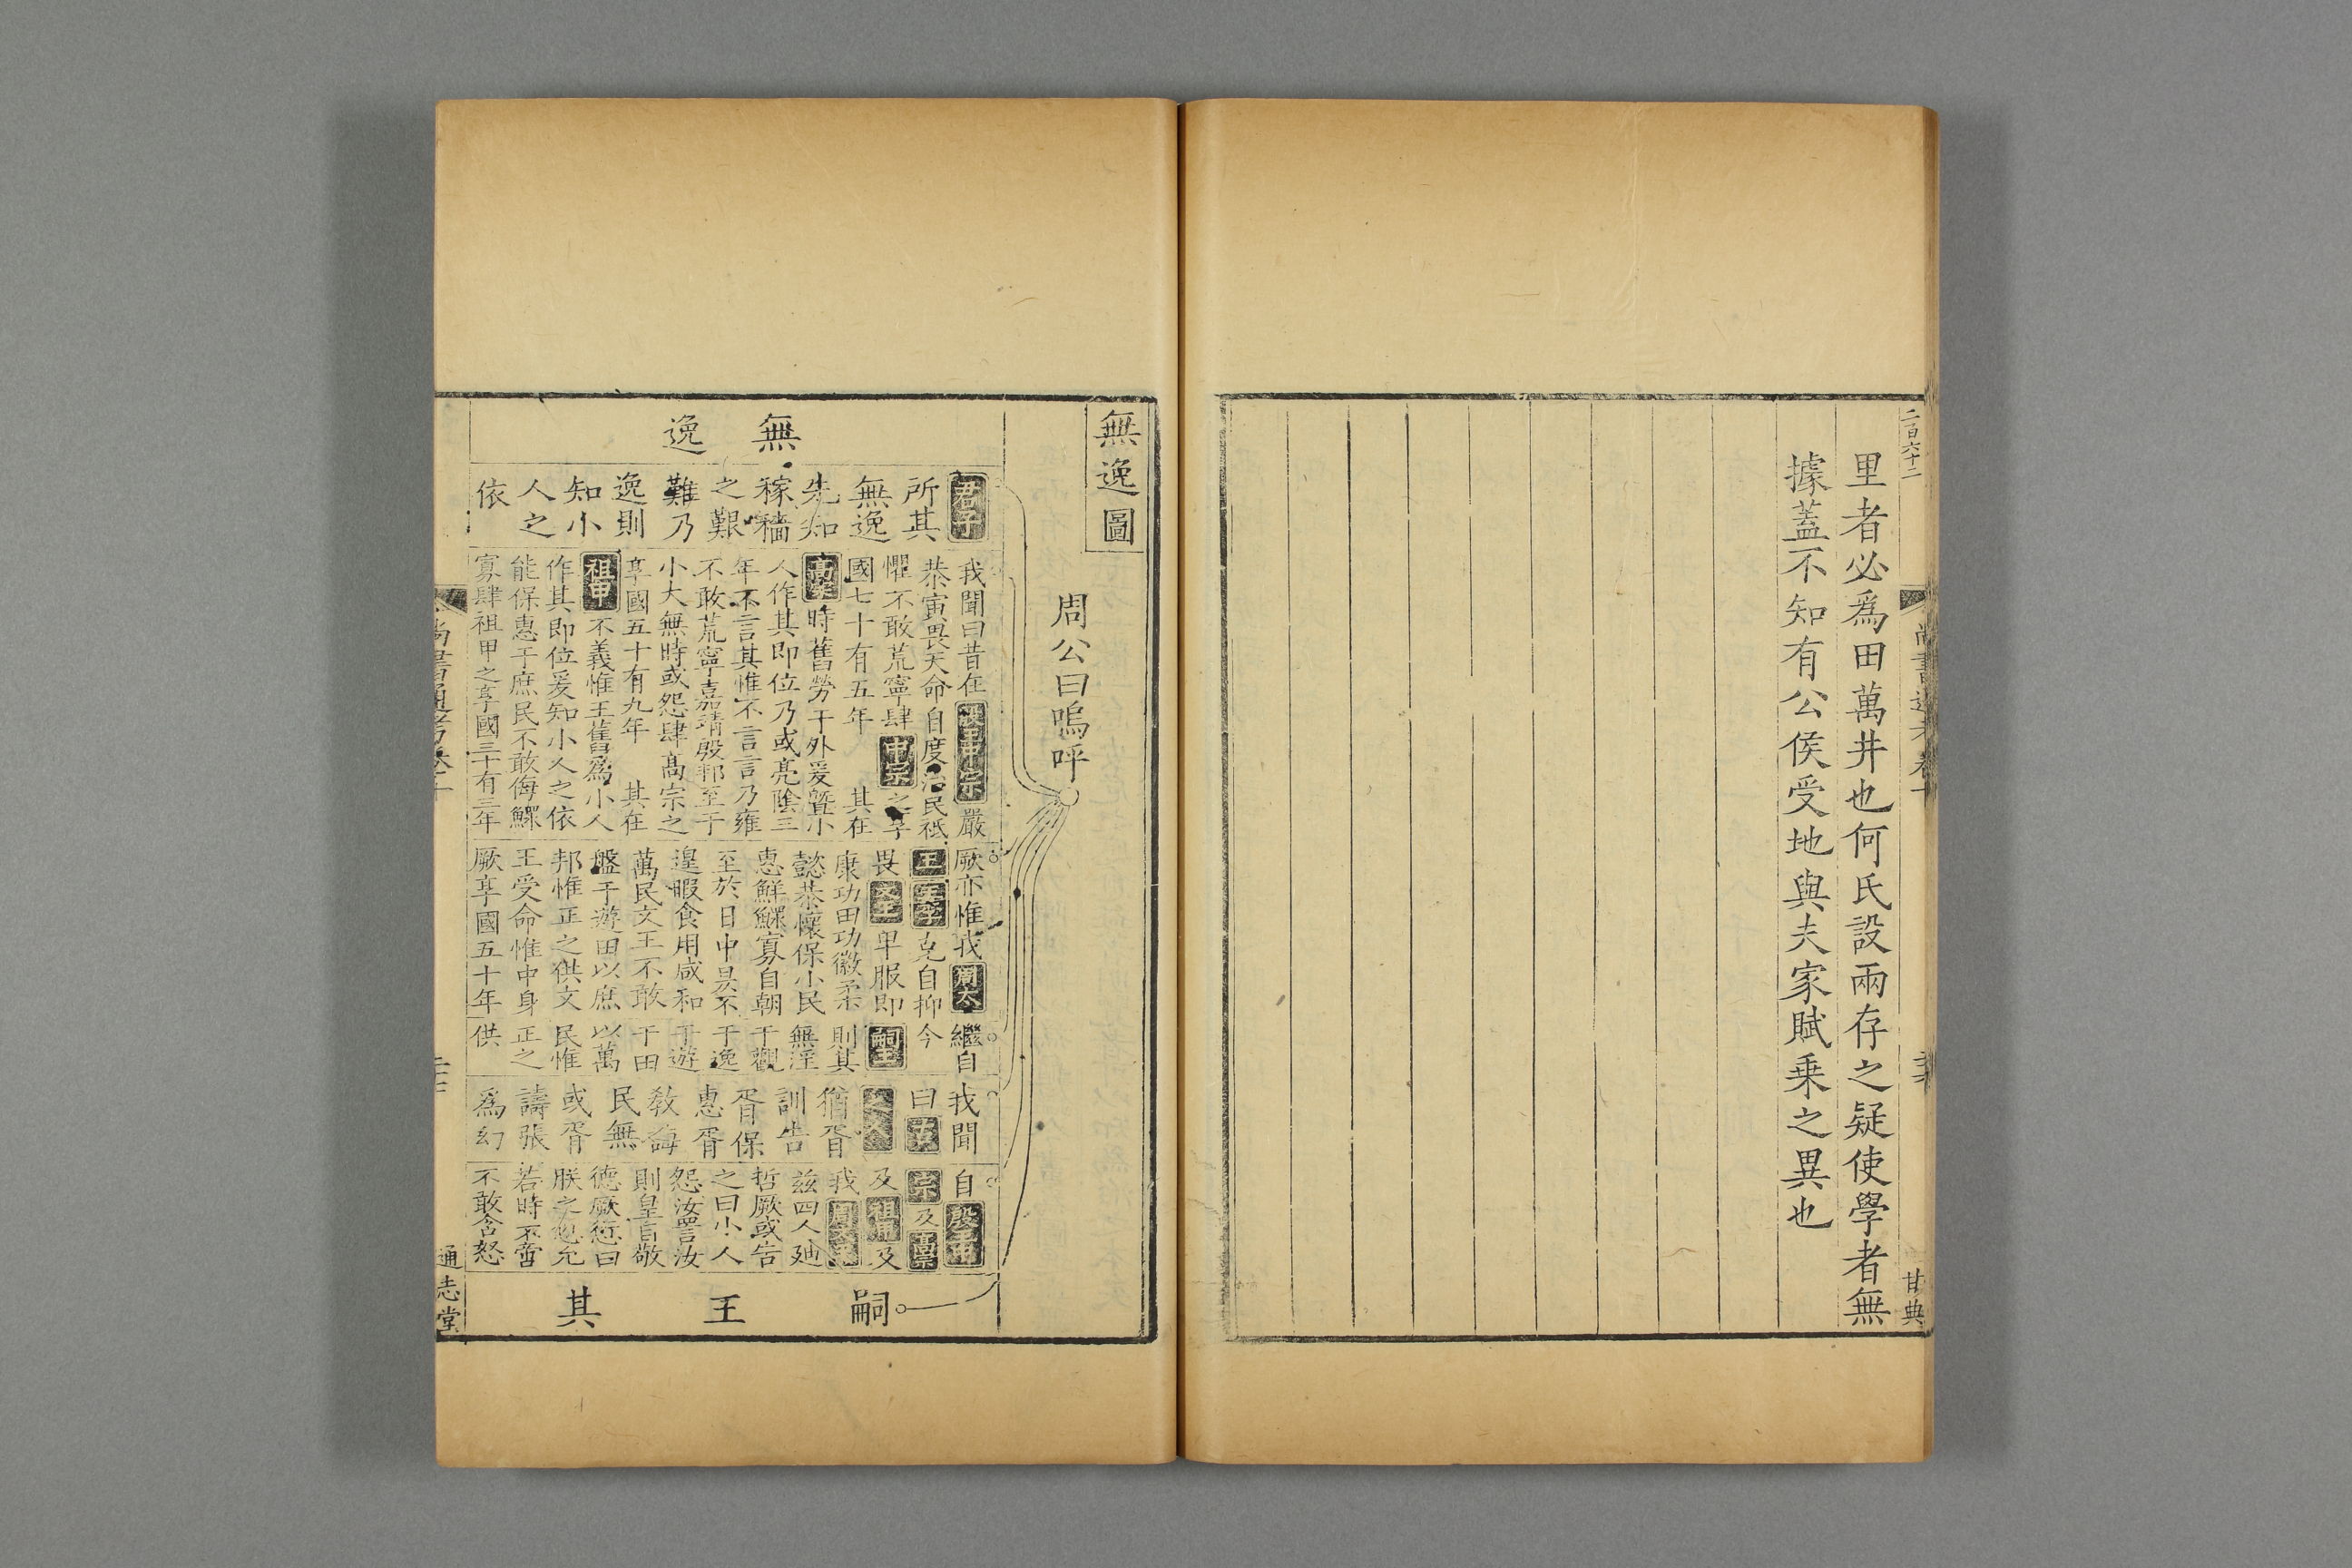 二百六十二
里者必爲田萬井也何氏設兩存之疑使學者無
據蓋不知有公侯受地與夫家賦乗之異也
甘典
無逸圖
周公曰嗚呼
無逸
君子
所其
無逸
先知
稼穡
之艱
難乃
逸則
知小
人之
依
我聞曰昔在殷王中宗嚴
恭寅畏天命自度治民祗
懼不敢荒寧肆中宗之享
國七十有五年 其在
高宗時舊勞于外爰曁小
人作其即位乃或亮陰三
年不言其惟不言言乃雍
不敢荒寧嘉靖殷邦至于
小大無時或怨肆高宗之
享國五十有九年 其在
祖甲不義惟王舊爲小人
作其即位爰知小人之依
能保惠于庶民不敢侮鰥
寡肆祖甲之享國三十有三年
厥亦惟我周太
王王季克自抑
畏文王卑服即
康功田功徽柔
懿恭懷保小民
惠鮮鰥寡自朝
至於日中昃不
遑暇食用咸和
萬民文王不敢
盤于遊田以庶
邦惟正之供文
王受命惟中身
厥享國五十年
繼自
今
嗣王
則其
無淫
于觀
于逸
于遊
于田
以萬
民惟
正之
供
我聞
曰古
之人
猶胥
訓告
胥保
惠胥
教誨
民無
或胥
譸張
爲幻
自殷王中
宗及高宗
及祖甲及
我周文王
兹四人廸
哲厥或告
之曰小人
怨汝詈汝
則皇自敬
德厥愆曰
朕之愆允
若時不啻
不敢含怒
嗣王其
尚書通考卷十
通志堂